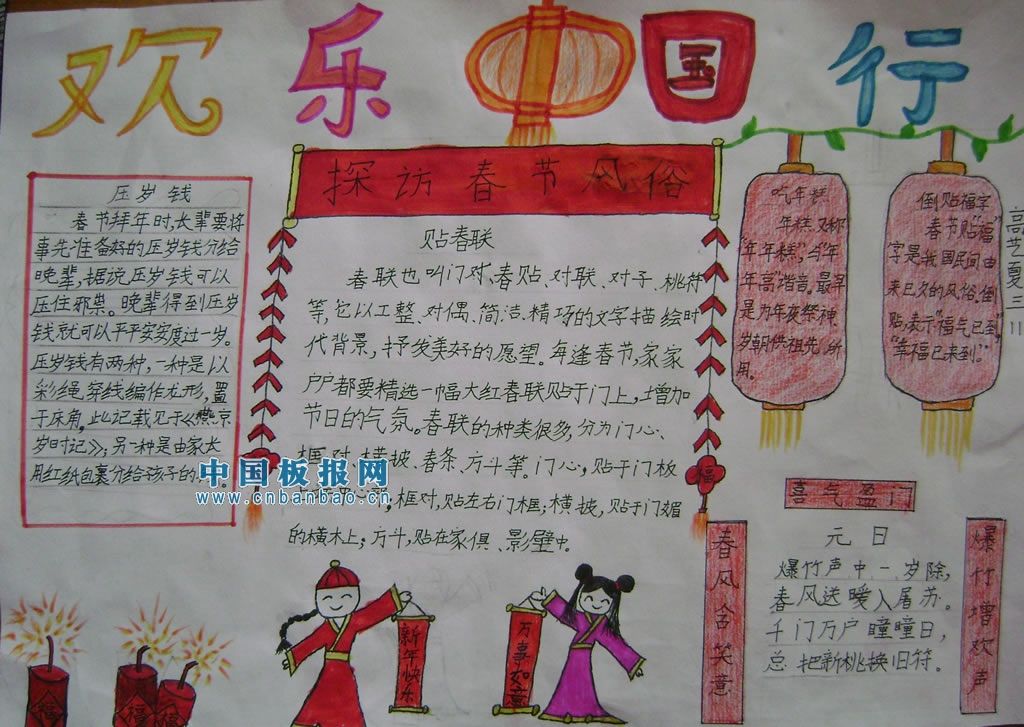 欢乐中国行
压岁钱
春节拜年时,长辈要将
事先准备好的压岁钱分给
晚辈,据说压岁钱可以
压住邪祟。晚辈得到压岁
钱就可以平平安安度过一岁。
压岁钱有两种,一种是以
彩绳穿线编作龙形,置
于床角。此记载见于《燕京
岁时记》;另一种是由家长
用红纸包裹分给孩子的
探访春节风俗
贴春联
春联也叫门对、春贴、对联、对子、桃符
等,它以工整、对偶、简洁、精巧的文字描绘时
代背景,抒发美好的愿望。每逢春节,家家
户户都要精选一幅大红春联贴于门上,增加
节日的气氛。春联的种类很多,分为门心、
框对、横披、春条、方斗等。门心,贴于门板
框对,贴左右门框;横披,贴于门媚
的横木上;方斗,贴在家俱、影壁中。
福
吃年糕
年糕又称
"年年糕",与"年
年高"谐音,最早
是为年夜祭神、
岁朝供祖先所
用。
倒贴福字
春节贴"福"
字是我国民间由
来已久的风俗。倒
贴,表示"福气已到"
"幸福已来到。"
高艺夏 三11
中国板报网
www.cnbanbao.cn
喜气盈门
春风含笑意
爆竹增欢声
元日
爆竹声中一岁除,
春风送暖入屠苏。
千门万户瞳瞳日,
总把新桃换旧符。
新年快乐
万事如意
福
福
福